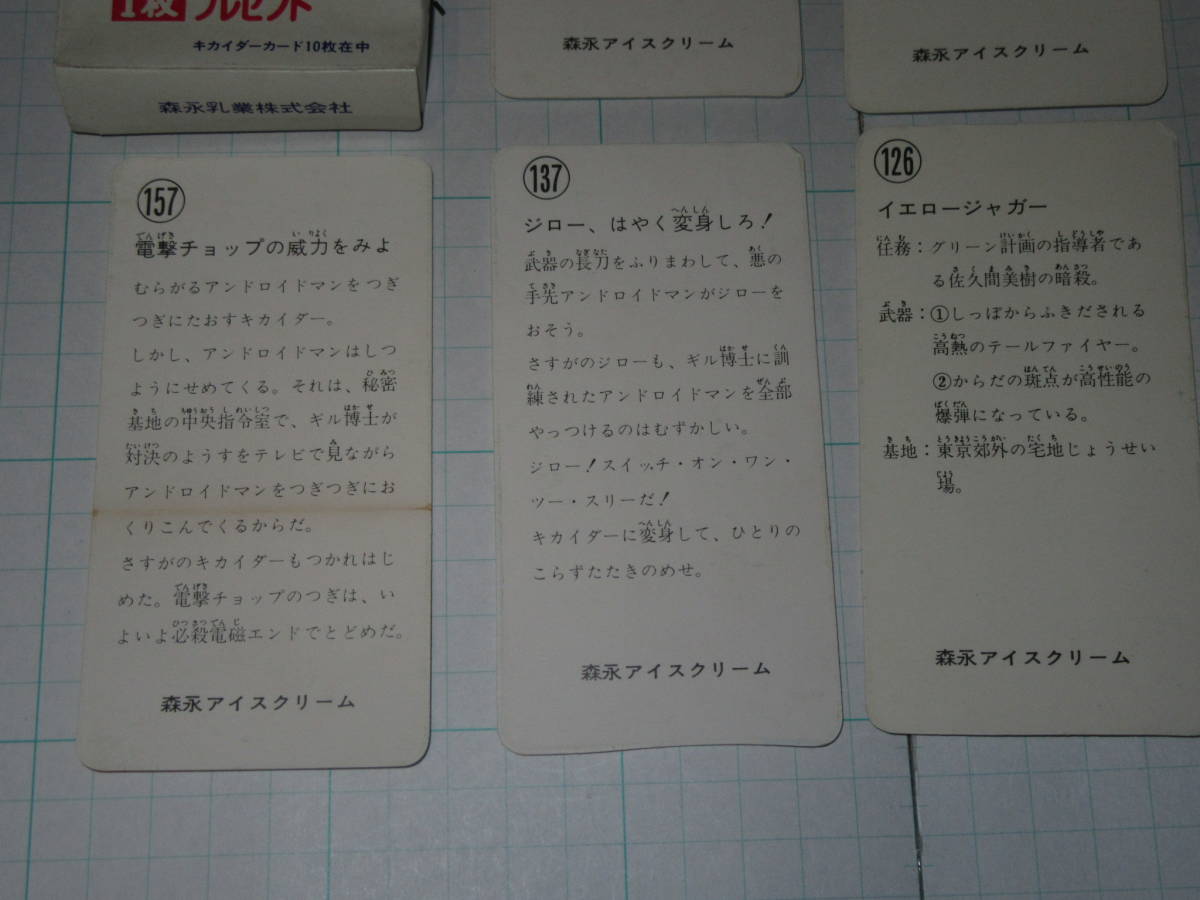 1枚プレゼント
キカイダーカード10枚在中
森永乳業株式会社
森永アイスクリーム
森永アイスクリーム
157
電撃チョップの威力をみよ
むらがるアンドロイドマンをつぎ
つぎにたおすキカイダー。
しかし、アンドロイドマンはしつ
ようにせめてくる。それは、秘密
基地の中央指令室で、ギル博士が
対決のようすをテレビで見ながら
アンドロイドマンをつぎつぎにお
くりこんでくるからだ。
さすがのキカイダーもつかれはじ
めた。電撃チョップのつぎは、い
よいよ必殺電磁エンドでとどめだ。
森永アイスクリーム
137
ジロー、はやく変身しろ!
武器の長刀をふりまわして、悪の
手先アンドロイドマンがジローを
おそう。
さすがのジローも、ギル博士に訓
練されたアンドロイドマンを全部
やっつけるのはむずかしい。
ジロー!スイッチ・オン・ワン・
ツー・スリーだ!
キカイダーに変身して、ひとりの
こらずたたきのめせ。
森永アイスクリーム
126
イエロージャガー
任務:グリーン計画の指導者であ
る佐久間美樹の暗殺。
武器:①しっぽからふきだされる
高熱のテールファイヤー。
②からだの斑点が高性能の
爆弾になっている。
基地:東京郊外の宅地じょうせい
場。
森永アイスクリーム